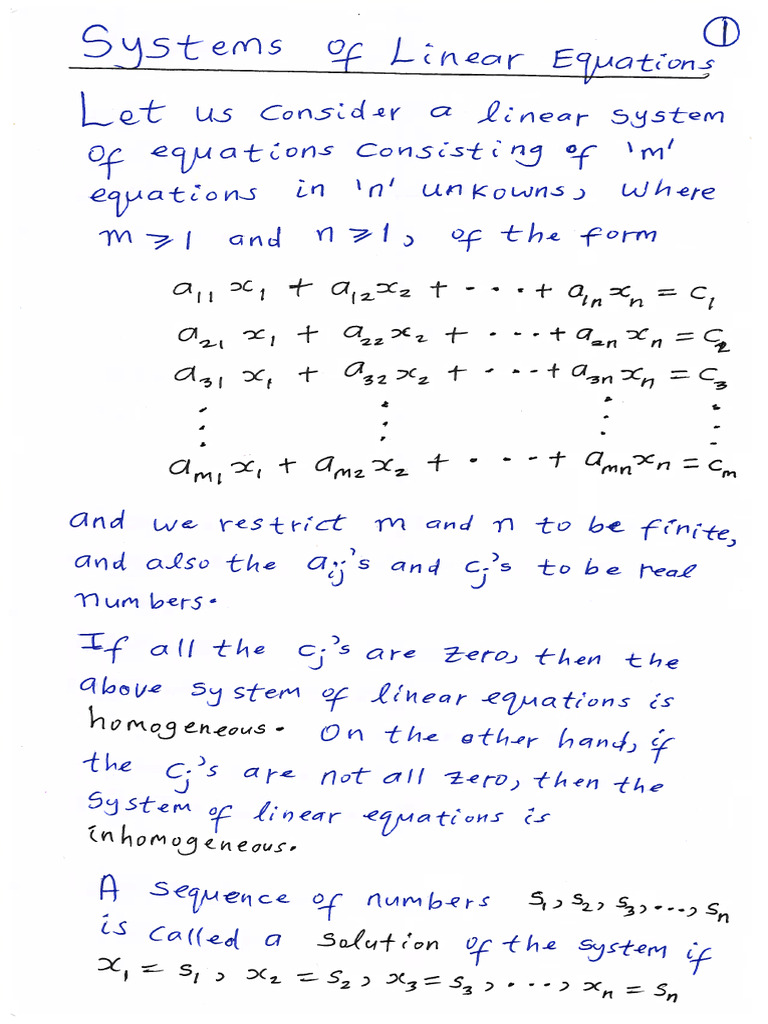 ①
Systems of Linear Equations
Let us consider a linear system
of equations consisting of 'm'
equations in 'n' unkowns, where
m ⩾ 1 and n ⩾ 1, of the form
a₁₁ x₁ + a₁₂x₂ + - - - + a₁ₙxₙ = c₁
a₂₁ x₁ + a₂₂x₂ + - - - + a₂ₙxₙ = c₂
a₃₁ x₁ + a₃₂x₂ + - - - + a₃ₙxₙ = c₃
⋮ ⋮ ⋮ ⋮
aₘ₁x₁ + aₘ₂x₂ + - - - + aₘₙxₙ = cₘ
and we restrict m and n to be finite,
and also the aᵢⱼ's and cⱼ's to be real
numbers.
If all the cⱼ's are zero, then the
above system of linear equations is
homogeneous. On the other hand, if
the cⱼ's are not all zero, then the
system of linear equations is
inhomogeneous.
A sequence of numbers s₁, s₂, s₃, ..., sₙ
is called a solution of the system if
x₁ = s₁, x₂ = s₂, x₃ = s₃, ..., xₙ = sₙ